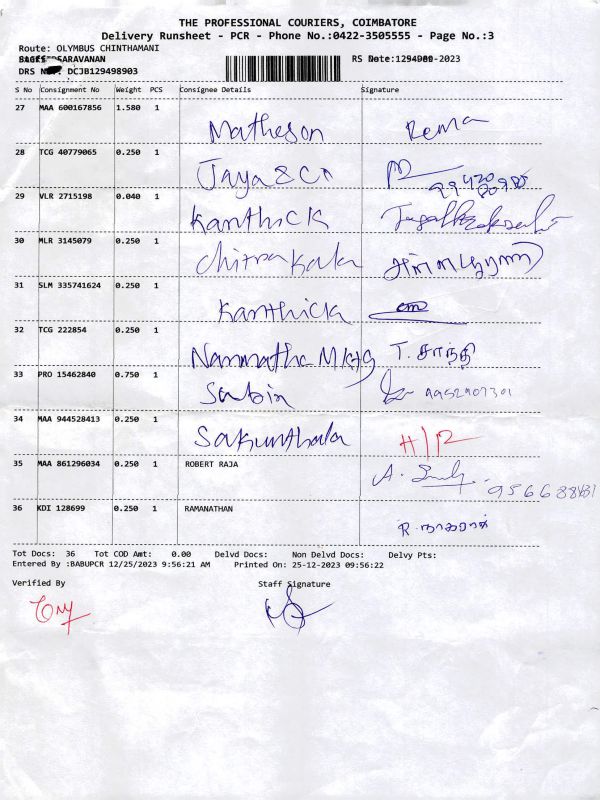 THE PROFESSIONAL COURIERS, COIMBATORE
Delivery Runsheet - PCR - Phone No.:0422-3505555 - Page No.:3
Route: OLYMBUS CHINTHAMANI
SARAVANAN
RS Note: -2023
DRS DCJB129498903
S No Consignment No Weight PCS Consignee Details Signature
27 MAA 600167856 1.580 1 Matheson Rema
28 TCG 40779065 0.250 1 Jaya & Co
29 VLR 2715198 0.040 1 Kanthick
30 MLR 3145079 0.250 1 Chitra Kala
31 SLM 335741624 0.250 1 Kanthick
32 TCG 222854 0.250 1 T. சாந்தி
33 PRO 15462840 0.750 1 Sabin 9952907301
34 MAA 944528413 0.250 1 Sakunthala H/R
35 MAA 861296034 0.250 1 ROBERT RAJA A.
36 KDI 128699 0.250 1 RAMANATHAN R. நாகராஜ்
Tot Docs: 36 Tot COD Amt: 0.00 Delvd Docs: Non Delvd Docs: Delvy Pts:
Entered By :BABUPCR 12/25/2023 9:56:21 AM Printed On: 25-12-2023 09:56:22
Verified By Staff Signature